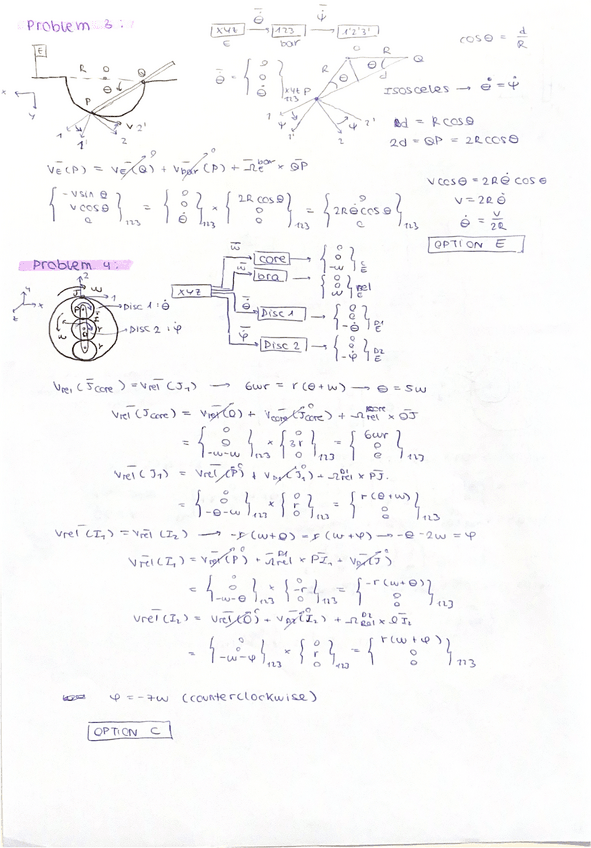 Problem 3:
xyz → θ̇ → 123 → ψ̇ → 1'2'3'
E bar
cos θ = d/R
E
R O Q
θ
P
x
y
1 1' 2 2' v
θ̇ = { 0 0 θ̇ } xyz 123
O R Q
R θ θ d
P
1 1' ψ ψ 2' 2
Isosceles → θ̇ = ψ̇
d = R cos θ
2d = QP = 2R cos θ
v_E(P) = v_E(Q) + v_bar(P) + Ω_E^bar × QP
{ -v sin θ v cos θ 0 }123 = { 0 0 θ̇ }123 × { 2R cos θ 0 0 }123 = { 0 2Rθ̇ cos θ 0 }123
v cos θ = 2Rθ̇ cos θ
v = 2Rθ̇
θ̇ = v/2R
OPTION E
Problem 4:
2
J w 1
y x z
Disc 1 : θ̇
Disc 2 : φ̇
xyz
w core { 0 0 -w } E
w bra { 0 0 w } rel E
θ̇ Disc 1 { 0 0 -θ̇ } D1 E
φ̇ Disc 2 { 0 0 -φ̇ } D2 E
v_rel(J_core) = v_rel(J_1) → 6wr = r(θ+w) → θ = 5w
v_rel(J_core) = v_rel(O) + v_core(J_core) + Ω_rel^core × OJ
= { 0 0 -w-w }123 × { 0 3r 0 }123 = { 6wr 0 0 }123
v_rel(J_1) = v_rel(P) + v_D1(J_1) + Ω_rel^D1 × PJ.
= { 0 0 -θ-w }123 × { 0 r 0 }123 = { r(θ+w) 0 0 }123
v_rel(I_1) = v_rel(I_2) → -r(w+θ) = r(w+φ) → -θ-2w = φ
v_rel(I_1) = v_rel(P) + Ω_rel^D1 × PI_1 + v_D1(J)
= { 0 0 -w-θ }123 × { 0 -r 0 }123 = { -r(w+θ) 0 0 }123
v_rel(I_2) = v_rel(O) + v_D2(I_2) + Ω_rel^D2 × OI_2
= { 0 0 -w-φ }123 × { 0 r 0 }123 = { r(w+φ) 0 0 }123
φ = -7w (counterclockwise)
OPTION C